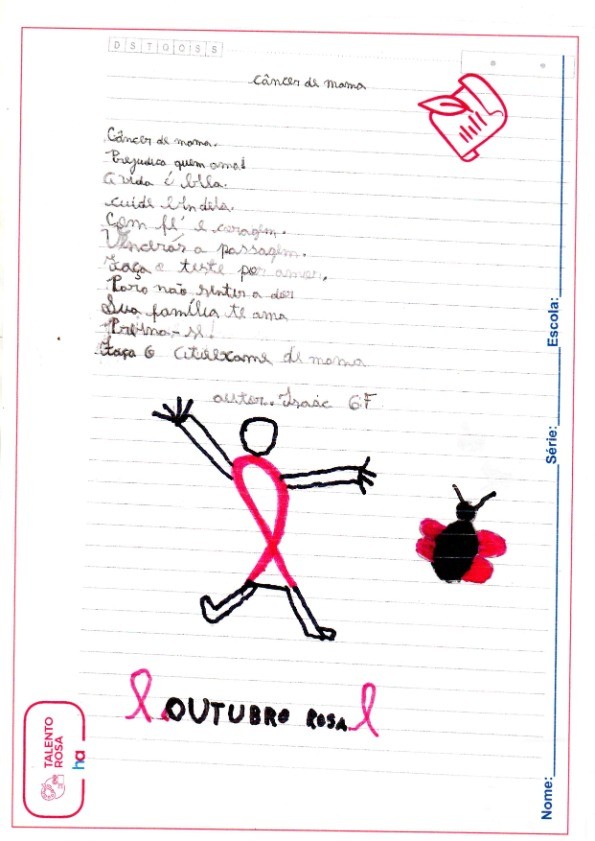 D S T Q Q S S
Câncer de mama
Câncer de mama.
Prejudica quem ama!
A vida é bela.
cuide bin dela.
Com fé, e coragem.
Vencerás a passagem.
Faça o teste por amor,
Para não sentir a dor
Sua família te ama
Previna-se!
Faça o autoexame de mama
autor. Isaác 6F
OUTUBRO ROSA
TALENTO
ROSA
ha
Nome:
Série:
Escola: